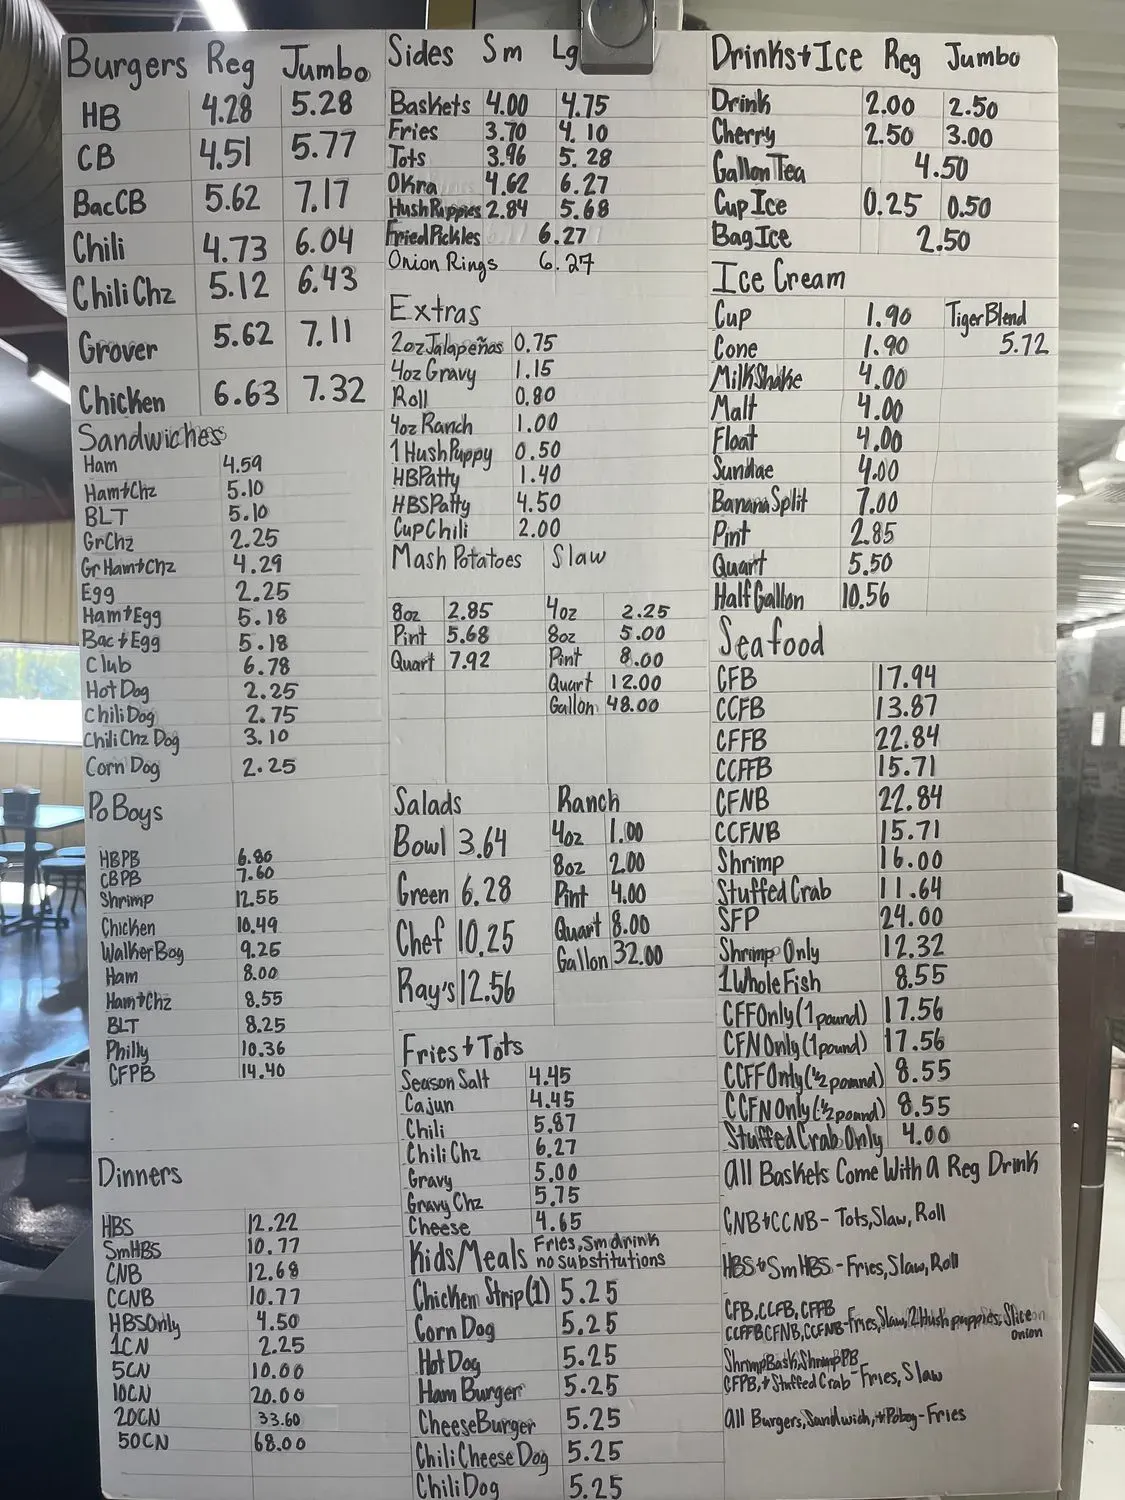 Burgers Reg Jumbo
HB 4.28 5.28
CB 4.51 5.77
BacCB 5.62 7.17
Chili 4.73 6.04
Chili Chz 5.12 6.43
Grover 5.62 7.11
Chicken 6.63 7.32
Sandwiches
Ham 4.59
Ham+Chz 5.10
BLT 5.10
GrChz 2.25
Gr Ham+Chz 4.29
Egg 2.25
Ham+Egg 5.18
Bac+Egg 5.18
Club 6.78
Hot Dog 2.25
Chili Dog 2.75
Chili Chz Dog 3.10
Corn Dog 2.25
Po Boys
HBPB 6.80
CBPB 7.60
Shrimp 12.55
Chicken 10.49
Walker Boy 9.25
Ham 8.00
Ham+Chz 8.55
BLT 8.25
Philly 10.36
CFPB 14.40
Dinners
HBS 12.22
SmHBS 10.77
CNB 12.68
CCNB 10.77
HBSOnly 4.50
1CN 2.25
5CN 10.00
10CN 20.00
20CN 33.60
50CN 68.00
Sides Sm Lg
Baskets 4.00 4.75
Fries 3.70 4.10
Tots 3.96 5.28
Okra 4.62 6.27
Hush Puppies 2.84 5.68
Fried Pickles 6.27
Onion Rings 6.27
Extras
2oz Jalapeños 0.75
4oz Gravy 1.15
Roll 0.80
4oz Ranch 1.00
1 Hush Puppy 0.50
HBPatty 1.40
HBSPatty 4.50
Cup Chili 2.00
Mash Potatoes Slaw
8oz 2.85 4oz 2.25
Pint 5.68 8oz 5.00
Quart 7.92 Pint 8.00
Quart 12.00
Gallon 48.00
Salads Ranch
Bowl 3.64 4oz 1.00
Green 6.28 8oz 2.00
Chef 10.25 Pint 4.00
Ray's 12.56 Quart 8.00
Gallon 32.00
Fries + Tots
Season Salt 4.45
Cajun 4.45
Chili 5.87
Chili Chz 6.27
Gravy 5.00
Gravy Chz 5.75
Cheese 4.65
Kids Meals Fries, Sm drink
no substitutions
Chicken Strip (1) 5.25
Corn Dog 5.25
Hot Dog 5.25
Ham Burger 5.25
Cheese Burger 5.25
Chili Cheese Dog 5.25
Chili Dog 5.25
Drinks+Ice Reg Jumbo
Drink 2.00 2.50
Cherry 2.50 3.00
Gallon Tea 4.50
Cup Ice 0.25 0.50
Bag Ice 2.50
Ice Cream
Cup 1.90 Tiger Blend
Cone 1.90 5.72
MilkShake 4.00
Malt 4.00
Float 4.00
Sundae 4.00
Banana Split 7.00
Pint 2.85
Quart 5.50
Half Gallon 10.56
Seafood
CFB 17.94
CCFB 13.87
CFFB 22.84
CCFFB 15.71
CFNB 22.84
CCFNB 15.71
Shrimp 16.00
Stuffed Crab 11.64
SFP 24.00
Shrimp Only 12.32
1 Whole Fish 8.55
CFFOnly (1 pound) 17.56
CFNOnly (1 pound) 17.56
CCFFOnly (1/2 pound) 8.55
CCFNOnly (1/2 pound) 8.55
Stuffed Crab Only 4.00
All Baskets Come With A Reg Drink
CNB+CCNB - Tots, Slaw, Roll
HBS+SmHBS - Fries, Slaw, Roll
CFB, CCFB, CFFB
CCFFB CFNB, CCFNB - Fries, Slaw, 2 Hush puppies, Slice
onion
Shrimp Bask, Shrimp PB
CFPB, + Stuffed Crab - Fries, Slaw
All Burgers, Sandwich, + Poboy - Fries